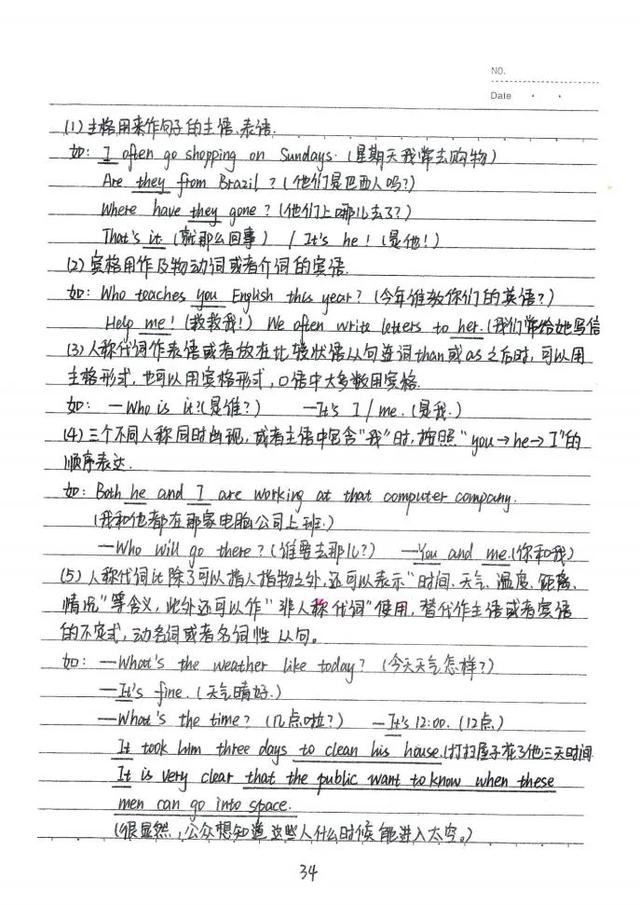 NO.
Date
(1)主格用来作句子的主语、表语.
如: I often go shopping on Sundays. (星期天我常去购物)
Are they from Brazil? (他们是巴西人吗?)
Where have they gone? (他们上哪儿去了?)
That's it. (就那么回事) / It's he! (是他!)
(2) 宾格用作及物动词或者介词的宾语.
如: Who teaches you English this year? (今年谁教你们的英语?)
Help me! (救救我!) We often write letters to her. (我们常给她写信
(3)人称代词作表语或者放在比较状语从句连词than或as之后时,可以用
主格形式,也可以用宾格形式,口语中大多数用宾格.
如: —Who is it? (是谁?) —It's I / me. (是我.)
(4)三个不同人称同时出现,或者主语中包含"我"时,按照"you→he→I"的
顺序表达.
如: Both he and I are working at that computer company.
(我和他都在那家电脑公司上班.)
—Who will go there? (谁要去那儿?) —You and me. (你和我)
(5) 人称代词it除了可以指人指物之外,还可以表示"时间、天气、温度、距离、
情况"等含义,此外还可以作"非人称代词"使用,替代作主语或者宾语
的不定式,动名词或者名词性从句。
如: —What's the weather like today? (今天天气怎样?)
—It's fine. (天气晴好.)
—What's the time? (几点啦?) —It's 12:00. (12点)
It took him three days to clean his house. (打扫屋子花了他三天时间
It is very clear that the public want to know when these
men can go into space.
(很显然,公众想知道这些人什么时候能进入太空。)
34